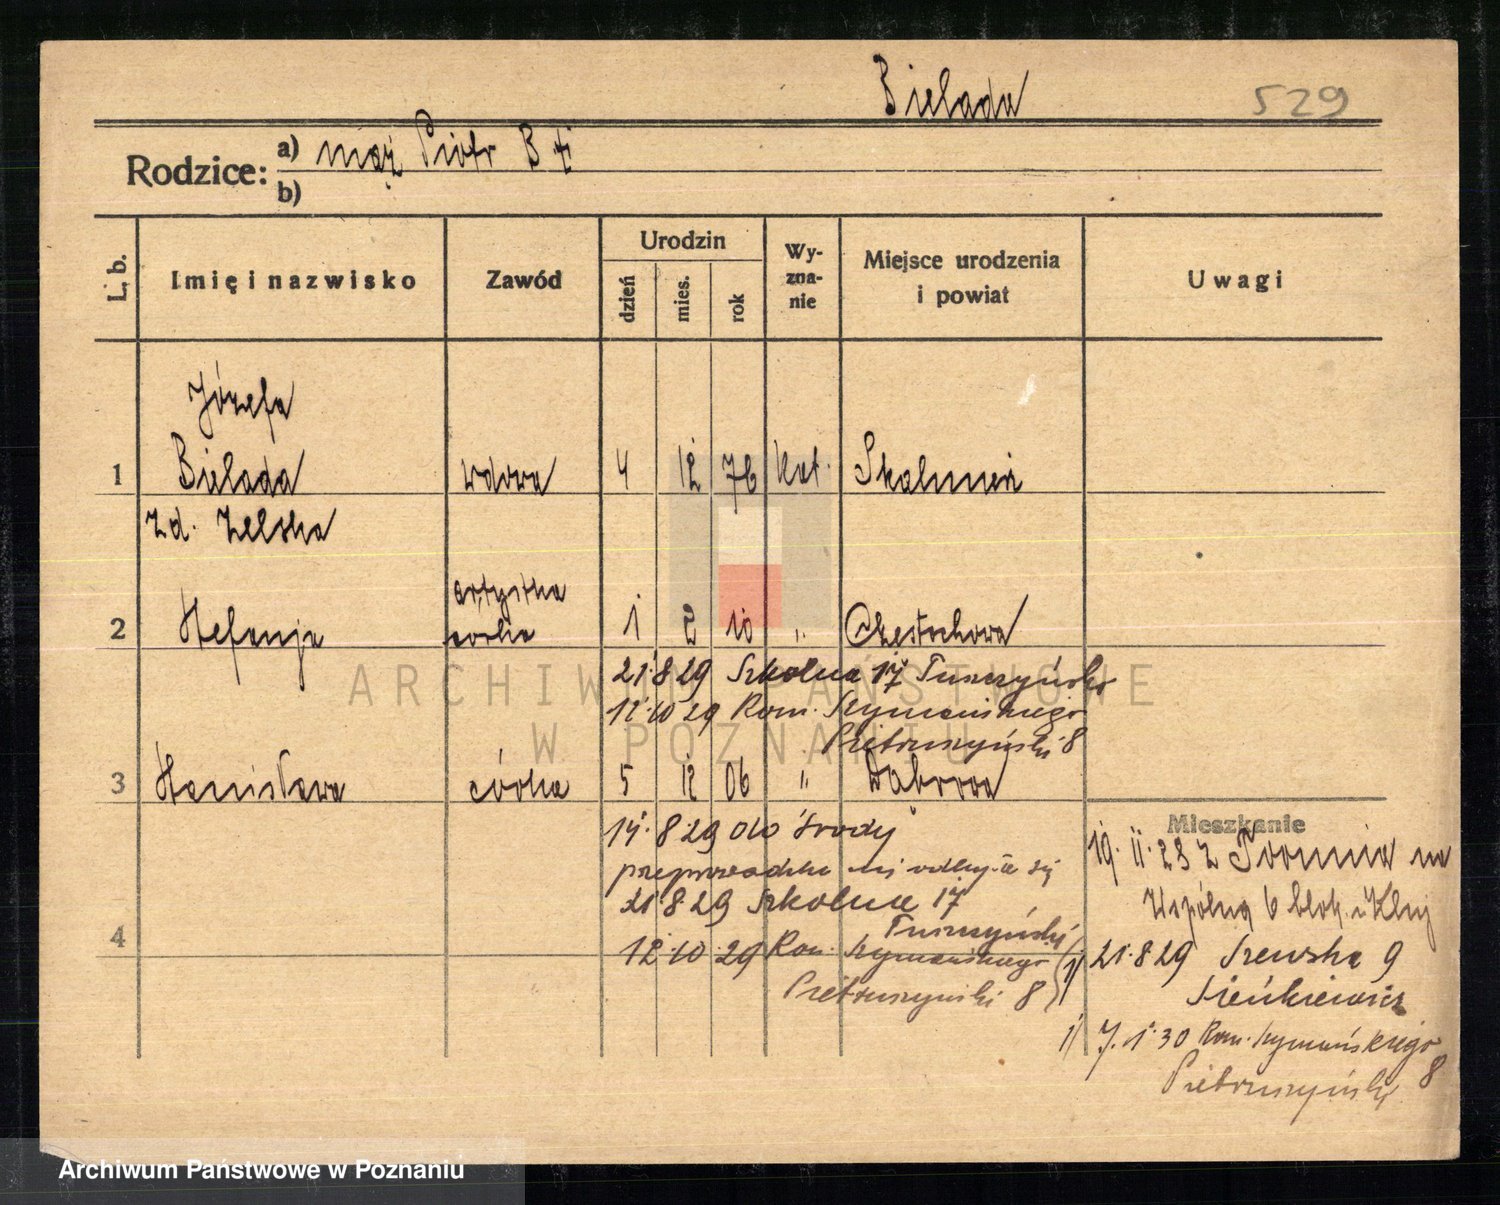 Bielada 529
Rodzice: a) mąż Piotr B
b)
L. b. Imię i nazwisko Zawód Urodzin dzień mies. rok Wy-zna-nie Miejsce urodzenia i powiat Uwagi
Józefa
1 Bielada wdowa 4 12 76 kat. Skalmierz
zd. Zelska
artystka
2 Stefanja córka 1 2 10 " Częstochowa
21.8.29 Szkolna 17 Tuszyński
12.10 29 Rom. Szymańskiego
Pietruszyński 8
3 Stanisława córka 5 12 06 " Dąbrowa
14.8.29 do Środy
przeprowadzka nie odbyła się
21.8.29 Szkolna 17
Tuszyński
4 12.10.29 Rom. Szymańskiego
Pietruszyński 8
Mieszkanie
19.II.23 z Torunia na
Wspólną 6 blok.
1) 21.8.29 Szewska 9
Sieńkiewicz
1) 7.1.30 Rom. Szymańskiego
Pietruszyński 8
ARCHIWUM PAŃSTWOWE
W POZNANIU
Archiwum Państwowe w Poznaniu